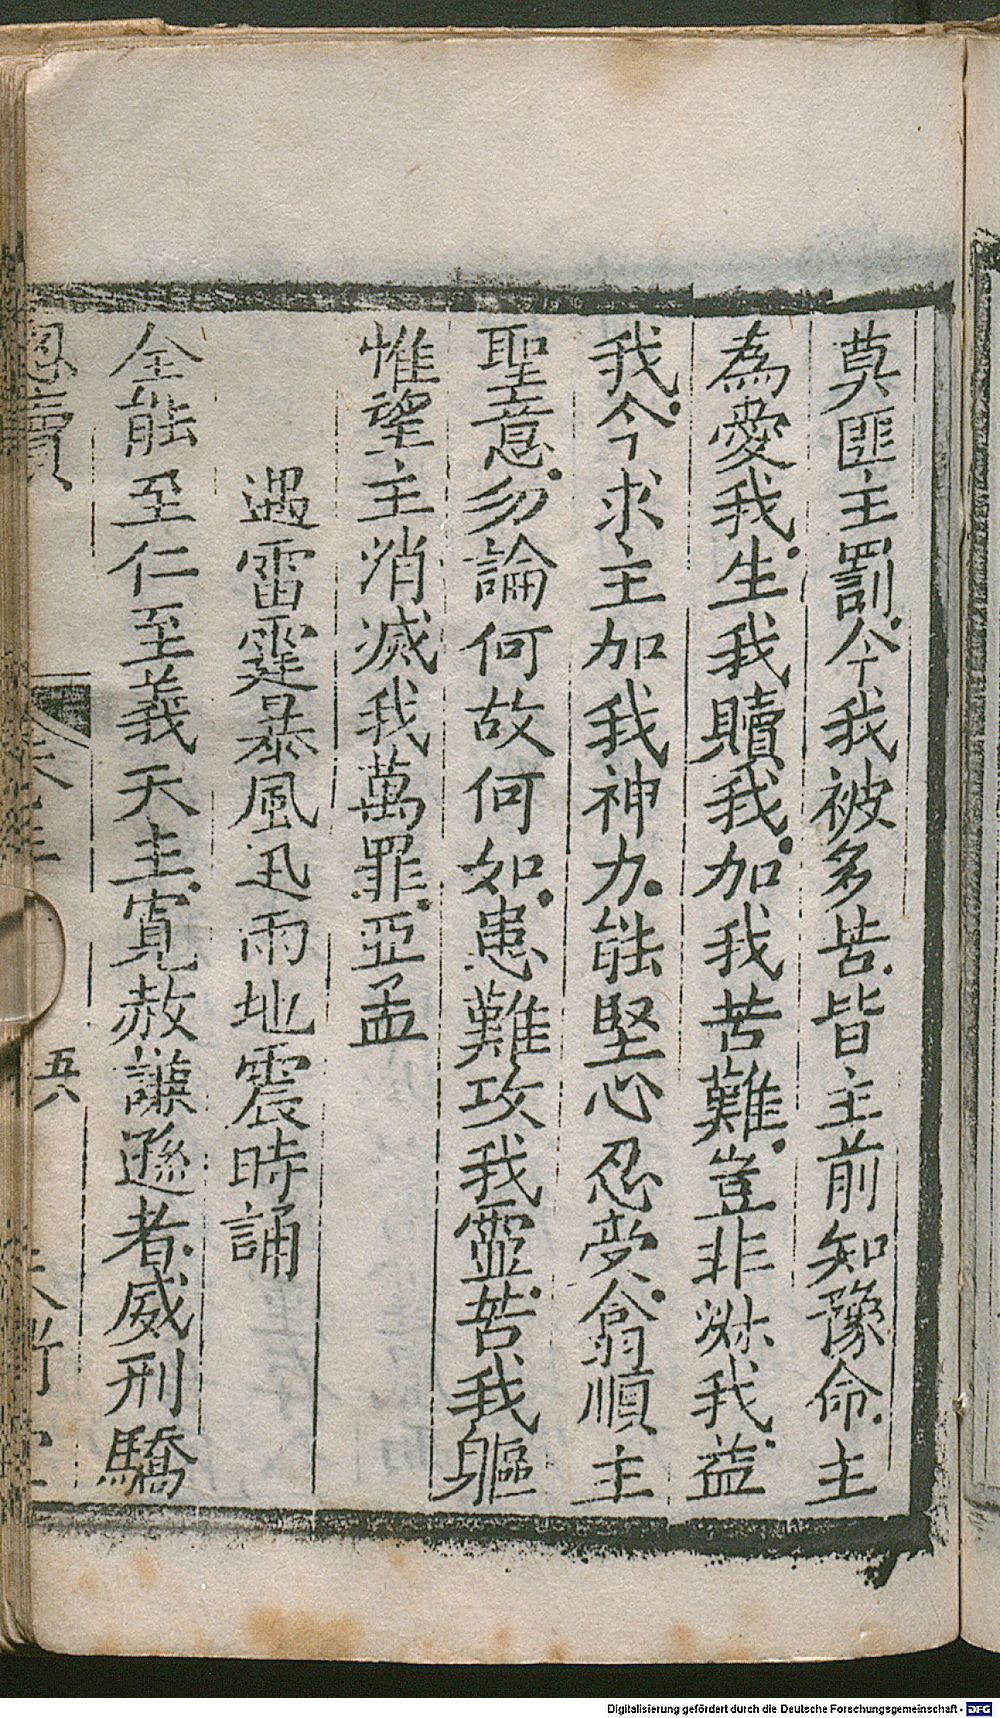 莫匪主罰。今我被多苦。皆主前知豫命。主
為愛我。生我贖我。加我苦難。豈非㷖我。益
我。今求主加我神力。能堅心忍受。翕順主
聖意。勿論何故何如。患難攻我靈。苦我軀
惟望主消滅我萬罪。亞孟
遇雷霆暴風迅雨地震時誦
全能至仁至義天主。寬赦謙遜者。威刑驕
五八
Digitalisierung gefördert durch die Deutsche Forschungsgemeinschaft - DFG